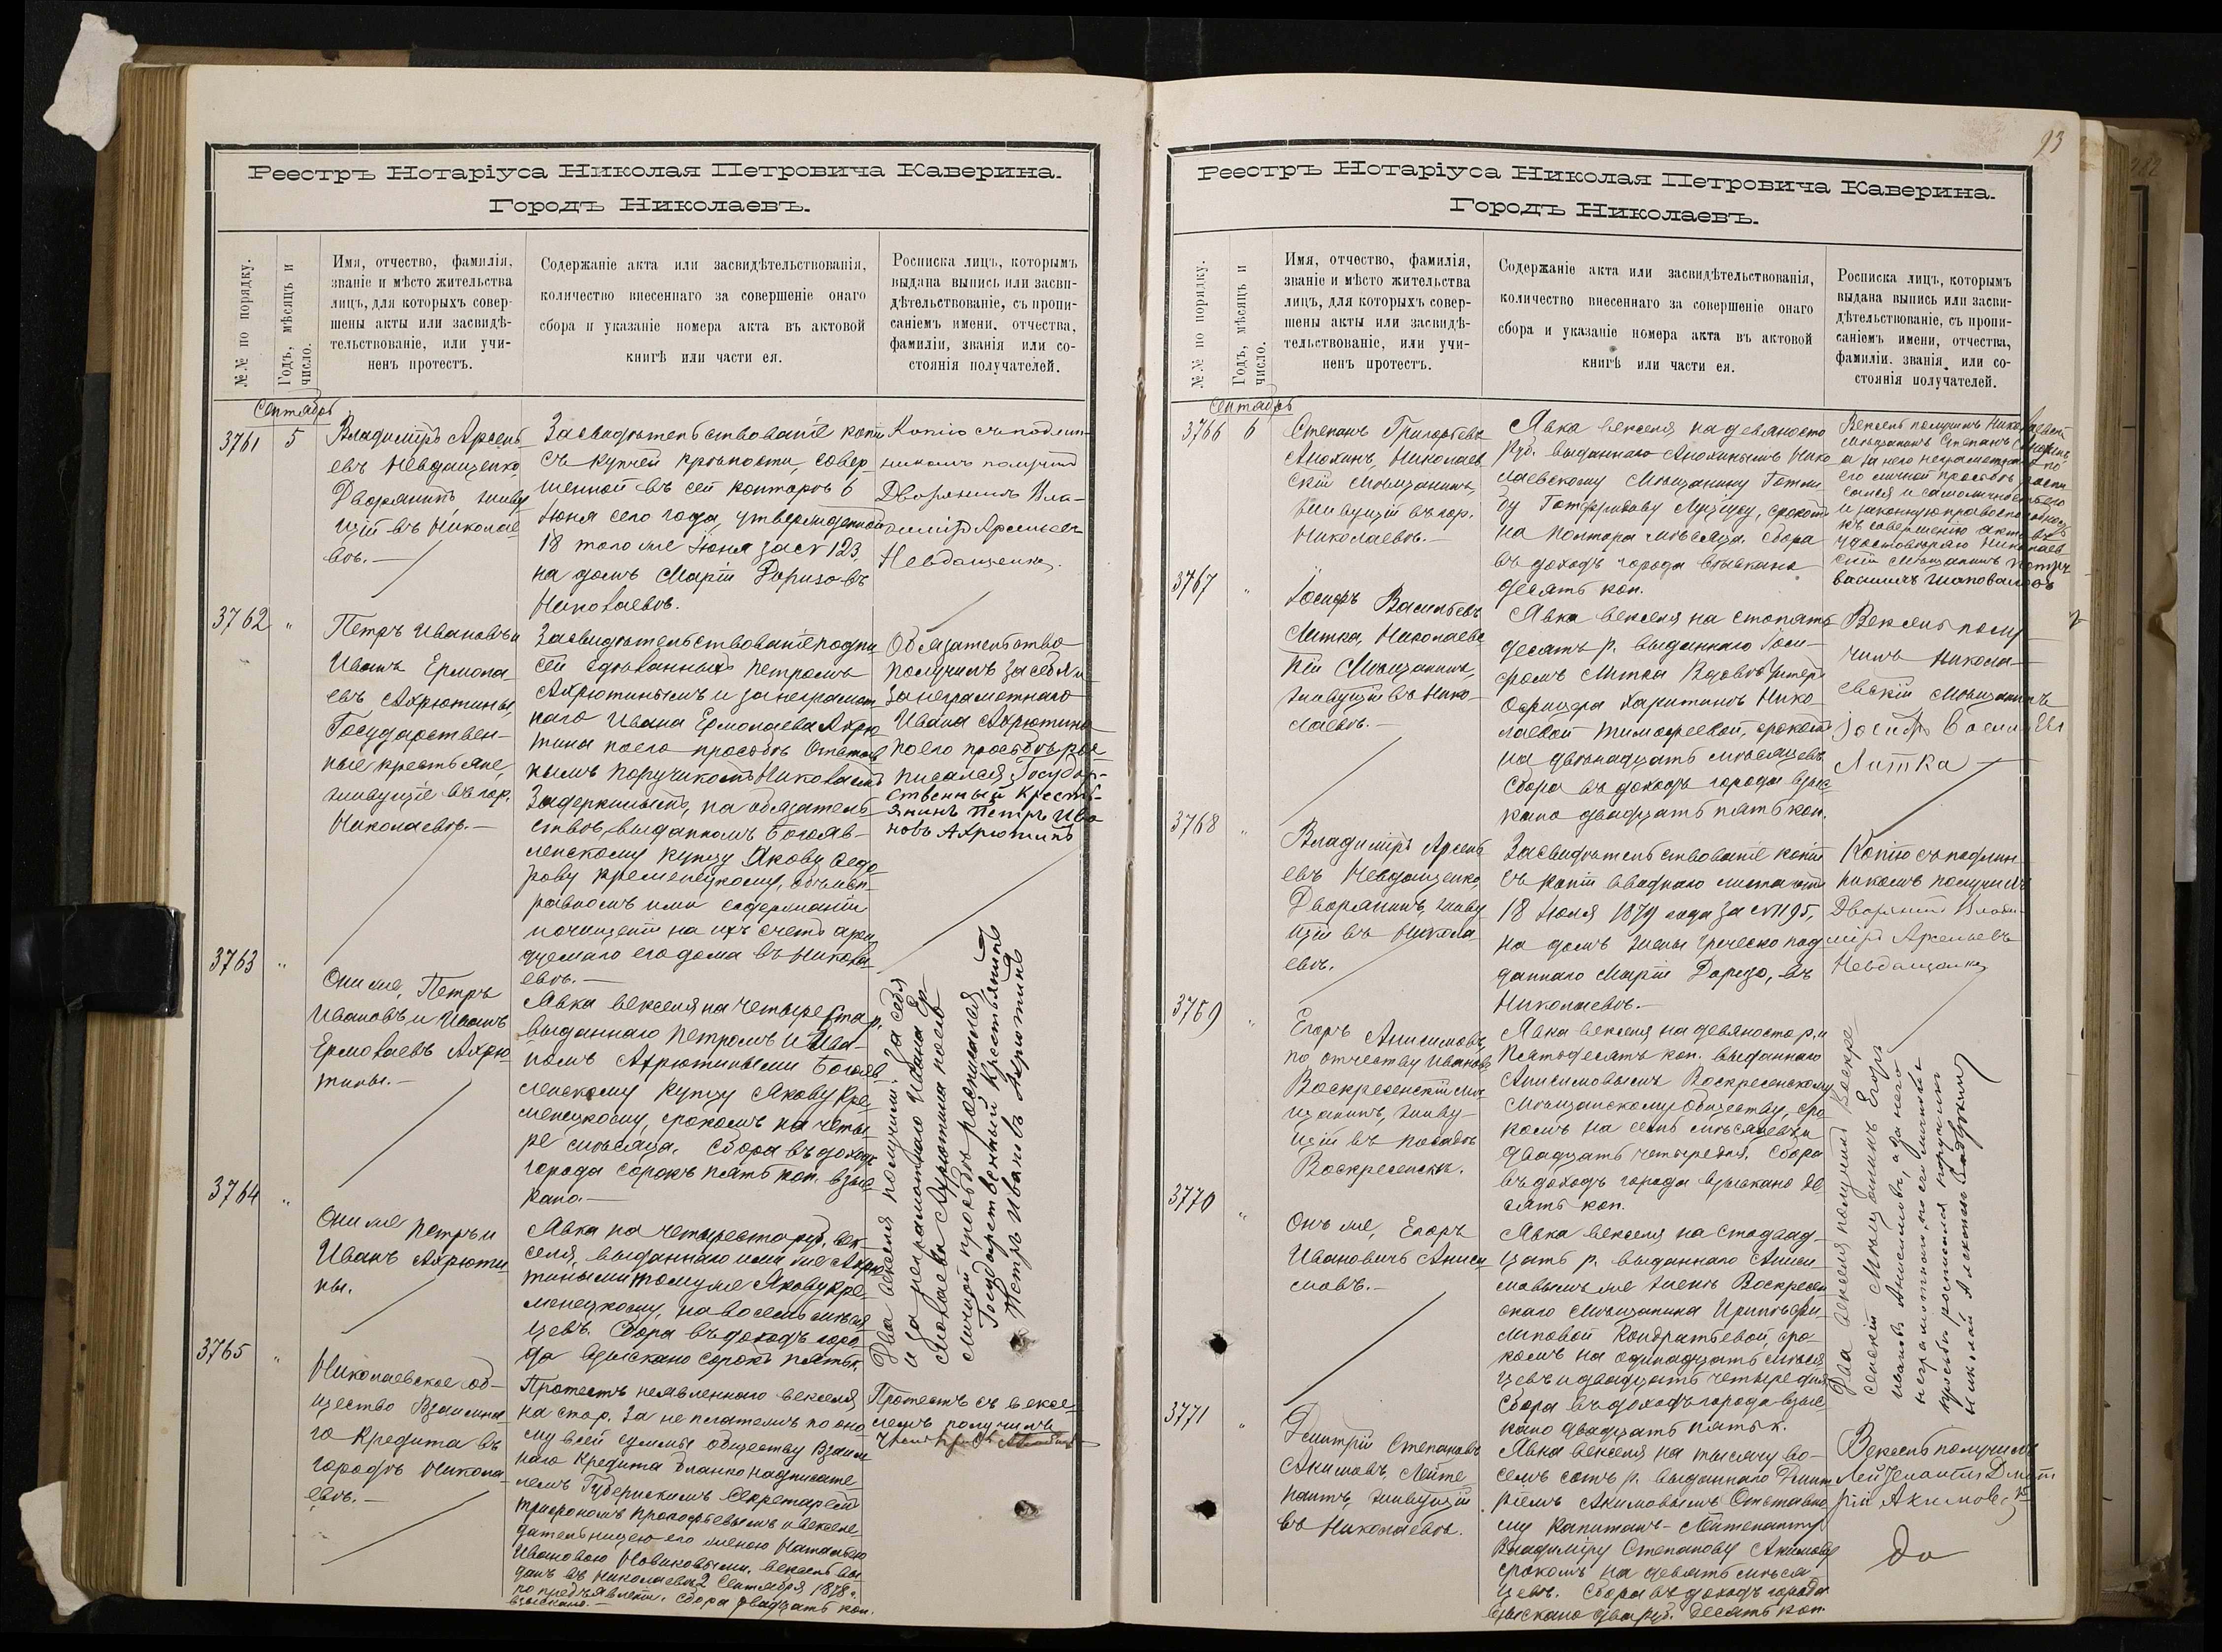 Реестръ Нотаріуса Николая Петровича Каверина.
Городъ Николаевъ.
№№ по порядку.
Годъ, мѣсяцъ и
число.
Имя, отчество, фамилія,
званіе и мѣсто жительства
лицъ, для которыхъ совер-
шены акты или засвидѣ-
тельствованіе, или учи-
ненъ протестъ.
Содержаніе акта или засвидѣтельствованія,
количество внесеннаго за совершеніе онаго
сбора и указаніе номера акта въ актовой
книгѣ или части ея.
Росписка лицъ, которымъ
выдана выпись или засви-
дѣтельствованіе, съ пропи-
саніемъ имени, отчества,
фамиліи, званія или со-
стоянія получателей.
Сентябрь
3761
5
Владиміръ Арсень
евъ Невдащенко,
Дворянинъ, живу
щій въ Николае
вѣ.—
Засвидѣтельствованіе копіи
съ купчей крѣпости, совер
шенной въ сей конторѣ 6
Іюня сего года, утвержденной
18 того же Іюня за № 123,
на домъ Маріи Доризо въ
Николаевѣ.
Копію съ подлин-
никомъ получилъ
Дворянинъ Вла-
диміръ Арсеньевъ
Невдащенко.
3762
"
Петръ Ивановъ и
Иванъ Ермола
евъ Ахрютины,
Государствен-
ные крестьяне,
живущіе въ гор.
Николаевѣ.—
Засвидѣтельствованіе подпи
сей сдѣланныхъ Петромъ
Ахрютинымъ и за неграмот
наго Ивана Ермолаева Ахрю
тина по его просьбѣ Отстав
нымъ Поручикомъ Николаемъ
на обязатель
ствѣ, выданномъ Богояв-
ленскому купцу Якову Федо
рову Кременецкому, объ исп-
равномъ ими содержаніи
почищеніи на ихъ счетъ арен
дуемаго его дома въ Никола
евѣ.—
Обязательство
получилъ за себя и
за неграмотнаго
Ивана Ахрютина
по его просьбѣ рос
писался Государ-
ственный кресть-
янинъ Петръ Ива
новъ Ахрютинъ
3763
"
Они же, Петръ
Ивановъ и Иванъ
Ермолаевъ Ахрю
тины.—
Явка векселя на четыреста р.
выданнаго Петромъ и Ива-
номъ Ахрютиными Богояв
ленскому купцу Якову Кре-
менецкому, срокомъ на четы
ре мѣсяца. Сбора въ доходъ
города сорокъ пять коп. взыс
кано.—
Два векселя получили: за себя
и за неграмотнаго Ивана Ер-
молаева Ахрютина по его
личной просьбѣ росписался
Государственный Крестьянинъ
Петръ Ивановъ Ахрютинъ
3764
"
Они же Петръ и
Иванъ Ахрюти
ны.
Явка на четыреста руб. век
селя, выданнаго ими же Ахрю
тиными тому же Якову Кре-
менецкому, на восемь мѣся
цевъ. Сбора въ доходъ горо-
да взыскано сорокъ пять к.
3765
"
Николаевское об-
щество Взаимна
го Кредита въ
городѣ Никола
евѣ.—
Протестъ неявленнаго векселя
на сто р. за не платежъ по оно
му всей суммы обществу Взаим
наго Кредита бланко надписате
лемъ Губернскимъ Секретаремъ
Трифономъ Прокофьевымъ и вексле
дательницею его женою Натальею
Ивановою Новиковыми, вексель вы
данъ въ Николаевѣ 2 Сентября 1878 г.
по предъявленіи. Сбора двадцать коп.
взыскано.—
Протестъ съ вексе-
лемъ получилъ
Реестръ Нотаріуса Николая Петровича Каверина.
Городъ Николаевъ.
93
№№ по порядку.
Годъ, мѣсяцъ и
число.
Имя, отчество, фамилія,
званіе и мѣсто жительства
лицъ, для которыхъ совер-
шены акты или засвидѣ-
тельствованіе, или учи-
ненъ протестъ.
Содержаніе акта или засвидѣтельствованія,
количество внесеннаго за совершеніе онаго
сбора и указаніе номера акта въ актовой
книгѣ или части ея.
Росписка лицъ, которымъ
выдана выпись или засви-
дѣтельствованіе, съ пропи-
саніемъ имени, отчества,
фамиліи, званія или со-
стоянія получателей.
Сентябрь
3766
6
Степанъ Григорьевъ
Анохинъ, Николаев
скій Мѣщанинъ,
живущій въ гор.
Николаевѣ.—
Явка векселя на девяносто
руб. выданнаго Анохинымъ Нико
лаевскому Мѣщанину Готли
бу Готфридову срокомъ
на полтора мѣсяца. Сбора
въ доходъ города взыскано
десять коп.
Вексель получилъ Николаевскій
Мѣщанинъ Степанъ Анохинъ,
а за него неграмотнаго по
его личной просьбѣ распи
сался и самоличность его
и законную правоспособность
къ совершенію актовъ
удостовѣряю Николаев
скій Мѣщанинъ Петръ
Шаповаловъ
3767
"
Іосифъ Васильевъ
Литка, Николаевс
кій Мѣщанинъ,
живущій въ Нико-
лаевѣ.—
Явка векселя на сто пять
десятъ р. выданнаго Іоси-
фомъ Литка Вдовѣ Унтеръ
Офицера Харитинѣ Нико
лаевой Тимофеевой, срокомъ
на двѣнадцать мѣсяцевъ.
Сбора въ доходъ города взыс
кано двадцать пять коп.
Вексель полу-
чилъ Никола-
евскій Мѣщанинъ
Іосифъ Васильевъ
Литка
3768
"
Владиміръ Арсень
евъ Невдащенко,
Дворянинъ, живу
щій въ Никола
евѣ.
Засвидѣтельствованіе копіи
съ копіи вводнаго листа отъ
18 Іюля 1879 года за № 1195,
на домъ жены Греческо под
даннаго Маріи Доризо, въ
Николаевѣ.—
Копію съ подлин-
никомъ получилъ
Дворянинъ Влади-
міръ Арсеньевъ
Невдащенко
3769
"
Егоръ Анисимовъ,
по отчеству Ивановъ
Воскресенскій Мѣ-
щанинъ, живу-
щій въ посадѣ
Воскресенскъ.
Явка векселя на девяносто р. и
пятьдесятъ коп. выданнаго
Анисимовымъ Воскресенскому
Мѣщанскому обществу, сро
комъ на семь мѣсяцевъ и
двадцать четыре дня. Сбора
въ доходъ города взыскано де
сять коп.
Два векселя получилъ Воскре
сенскій Мѣщанинъ Егоръ
Ивановъ Анисимовъ, а за него
неграмотнаго, по его личной
просьбѣ росписался поручикъ
3770
"
Онъ же, Егоръ
Ивановичъ Аниси
мовъ.—
Явка векселя на сто двад-
цать р. выданнаго Аниси
мовымъ же женѣ Воскресен
скаго Мѣщанина
Кондратьевой, сро-
комъ на одинадцать мѣся
цевъ и двадцать четыре дня
Сбора въ доходъ города взыс
кано двадцать пять к.
3771
"
Дмитрій Степановъ
Акимовъ, Лейте
нантъ, живущій
въ Николаевѣ.
Явка векселя на тысячу во-
семь сотъ р. выданнаго Дмит
ріемъ Акимовымъ Отставно
му Капитанъ-Лейтенанту
Владиміру Степанову Акимову
срокомъ на девять мѣся
цевъ. Сбора въ доходъ города
взыскано два руб. десять коп.
Вексель получилъ
Лейтенантъ Дмит
рій Акимовъ